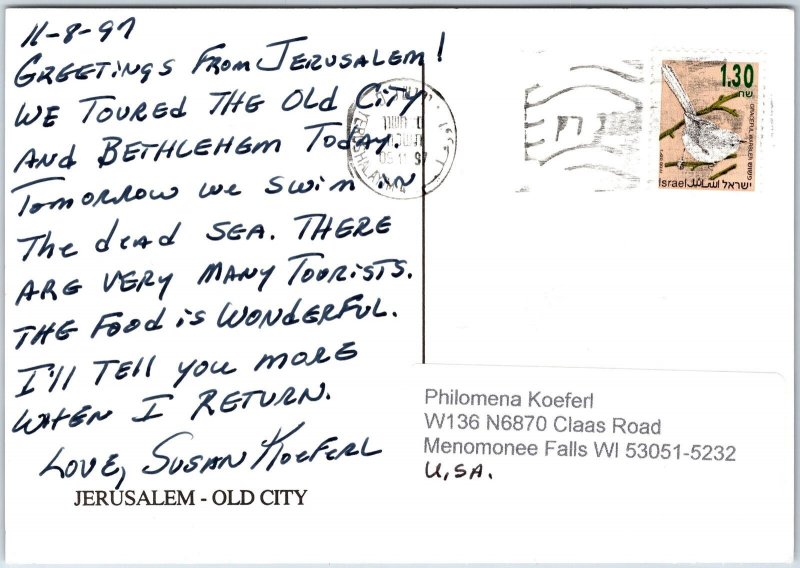 11-8-97
GREETINGS FROM JERUSALEM!
WE TOURED THE OLD CITY
AND BETHLEHEM TODAY.
TOMORROW WE SWIM IN
THE dEAD SEA. THERE
ARE VERY MANY TOURISTS.
THE FOOD IS WONDERFUL.
I'll TELL YOU MORE
WHEN I RETURN.
LOVE, SUSAN KOEFERL
JERUSALEM - OLD CITY
YERUSHALAYIM
1.30
GRACEFUL WARBLER
Israel اسرائيل ישראל
Philomena Koeferl
W136 N6870 Claas Road
Menomonee Falls WI 53051-5232
U.S.A.